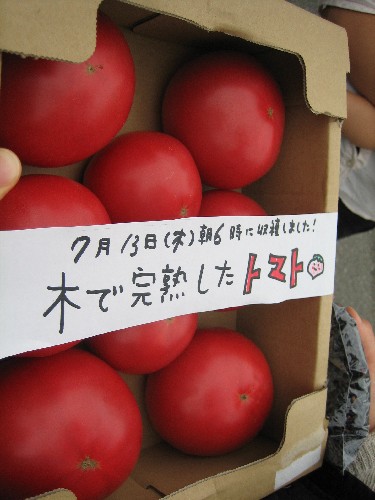 7月13日(木)朝6時に収穫しました!
木で完熟したトマト